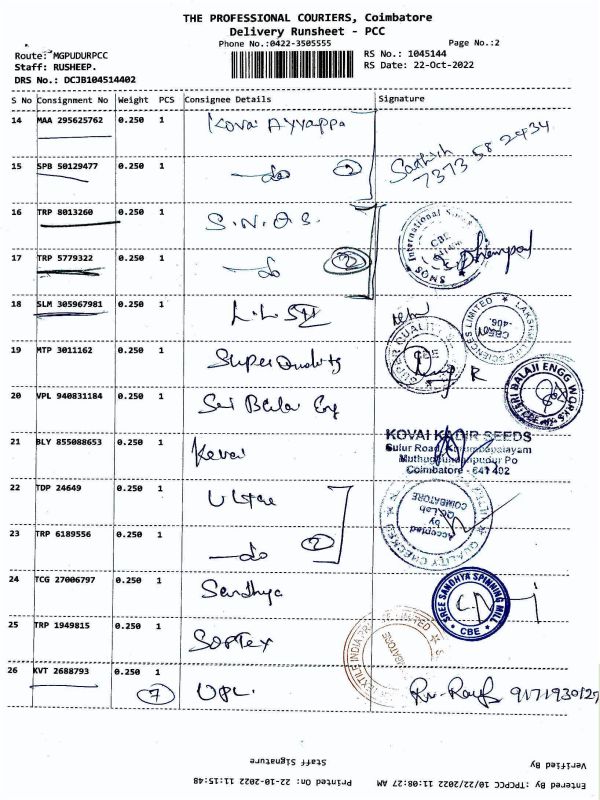 THE PROFESSIONAL COURIERS, Coimbatore
Delivery Runsheet - PCC
Phone No.:0422-3505555 Page No.:2
Route: MGPUDURPCC RS No.: 1045144
Staff: RUSHEEP. RS Date: 22-Oct-2022
DRS No.: DCJB104514402
S No Consignment No Weight PCS Consignee Details Signature
14 MAA 295625762 0.250 1 Kovai Ayyappa
Sathish 7373582434
15 SPB 50129477 0.250 1 do 2
16 TRP 8013260 0.250 1 S.N.Q.S.
SNQS International CBE
17 TRP 5779322 0.250 1 do 2
18 SLM 305967981 0.250 1 L.L.S
19 MTP 3011162 0.250 1 Super Quality
SUPER QUALITY R
20 VPL 940831184 0.250 1 Sri Balaji Eng
SRI BALAJI ENGG WORKS
21 BLY 855088653 0.250 1 Kovai
KOVAI KADIR SEEDS
Sulur Road, Karumapalayam
Muthugoundanpudur Po
Coimbatore - 641 402
22 TDP 24649 0.250 1
QUALITY CHECKED
Accepted
by
QC Lab
COIMBATORE
23 TRP 6189556 0.250 1 do 2
24 TCG 27006797 0.250 1 Sandhya
SREE SANDHYA SPINNING MILL
CBE
25 TRP 1949815 0.250 1 Softex
TEXTILE INDIA PRIVATE LIMITED
26 KVT 2688793 0.250 1 UPL.
7
Staff Signature Verified By
Printed On: 22-10-2022 11:15:48 Entered By :TPCPCC 10/22/2022 11:08:27 AM